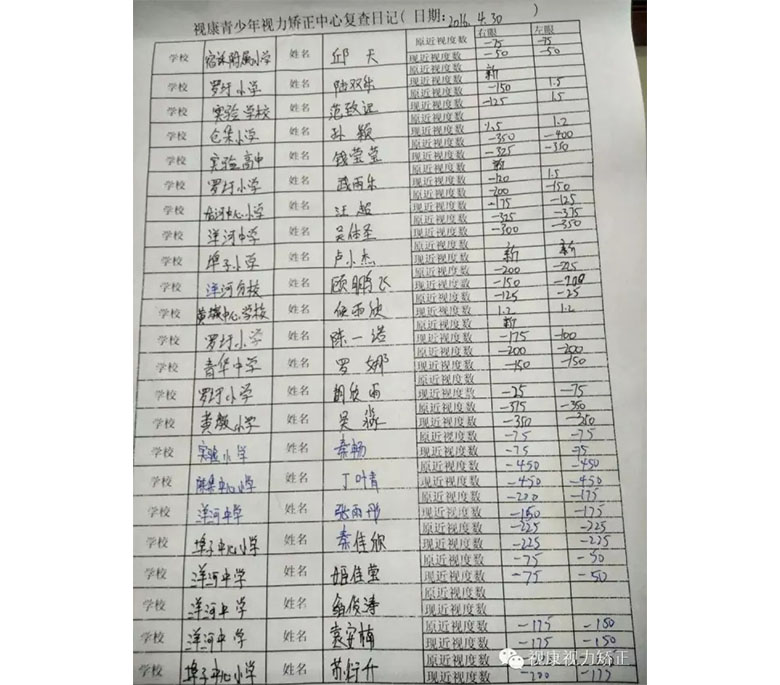 视康青少年视力矫正中心复查日记（日期：2016.4.30 ）
右眼 左眼
学校 宿迁附属小学 姓名 邱天 原近视度数 -75 -75
现近视度数 -50 -50
学校 罗圩小学 姓名 陆双乐 原近视度数 新
现近视度数 -150 1.5
学校 实验学校 姓名 范致远 原近视度数 -125 1.5
现近视度数
学校 仓集小学 姓名 孙颖 原近视度数
现近视度数 1.5 1.2
学校 实验高中 姓名 钱莹莹 原近视度数 -350 -400
现近视度数 -325 -350
学校 罗圩小学 姓名 雨乐 原近视度数 新
现近视度数 -120 1.5
学校 中心小学 姓名 汪超 原近视度数 -200 -150
现近视度数 -175 -125
学校 洋河中学 姓名 吴佳圣 原近视度数 -325 -375
现近视度数 -300 -350
学校 埠子小学 姓名 卢小杰 原近视度数
现近视度数 新 新
学校 洋河分校 姓名 顾鹏飞 原近视度数 -200 -225
现近视度数 -150 -200
学校 黄墩中心学校 姓名 任雨欣 原近视度数 -125 -25
现近视度数 1.2 1.2
学校 罗圩小学 姓名 陈一诺 原近视度数 新
现近视度数 -175 -100
学校 青华中学 姓名 罗娜 原近视度数 -200 -200
现近视度数 -150 -150
学校 罗圩小学 姓名 胡欣雨 原近视度数
现近视度数 -25 -75
学校 黄墩小学 姓名 吴淼 原近视度数 -375 -350
现近视度数 -350 -250
学校 实验小学 姓名 秦畅 原近视度数 -75 -75
现近视度数 -75 -75
学校 中心小学 姓名 丁叶青 原近视度数 -450 -450
现近视度数 -450 -450
学校 洋河中学 姓名 张雨彤 原近视度数 -200 -175
现近视度数 -150 -175
学校 埠子中心小学 姓名 秦佳欣 原近视度数 -225 -225
现近视度数 -225 -225
学校 洋河中学 姓名 姬佳莹 原近视度数 -75 -50
现近视度数 -75 -50
学校 洋河中学 姓名 俊涛 原近视度数
现近视度数
学校 洋河中学 姓名 袁安楠 原近视度数 -175 -150
现近视度数 -175 -150
学校 埠子中心小学 姓名 苏行升 原近视度数
现近视度数 -200 -175
视康视力矫正